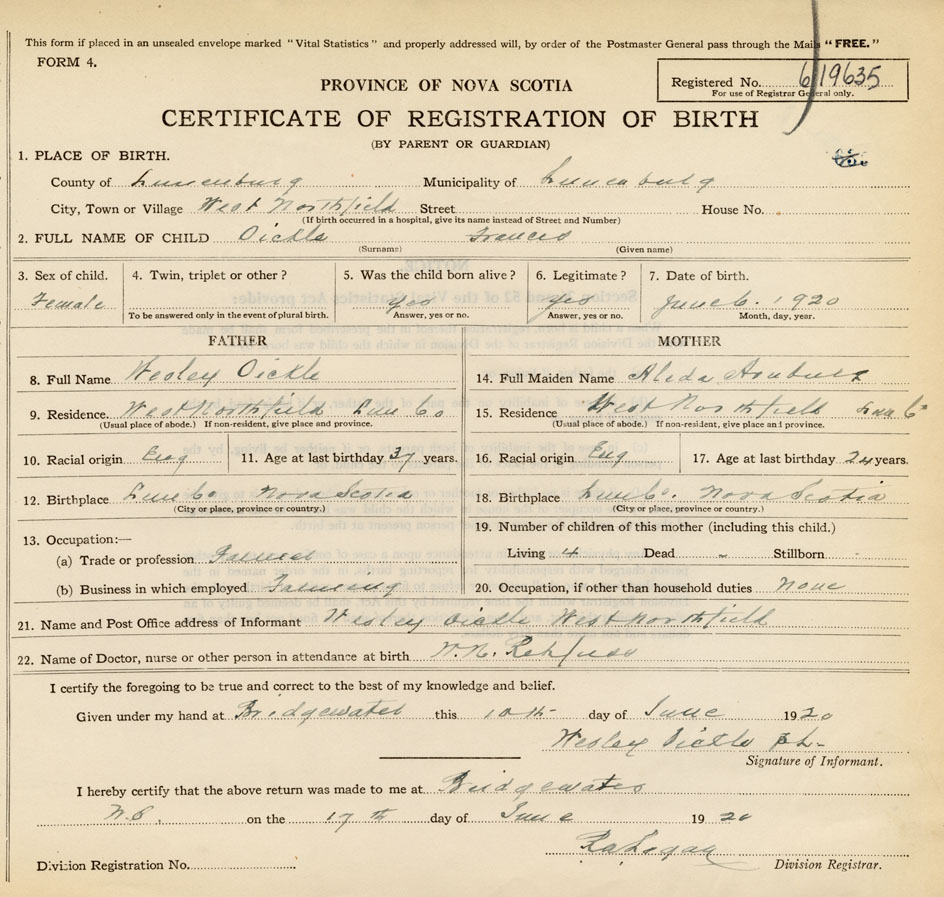 This form if placed in an unsealed envelope marked "Vital Statistics" and properly addressed will, by order of the Postmaster General pass through the Mails "FREE."
FORM 4.
PROVINCE OF NOVA SCOTIA
Registered No. 6 19635
For use of Registrar General only.
CERTIFICATE OF REGISTRATION OF BIRTH
(BY PARENT OR GUARDIAN)
1. PLACE OF BIRTH.
County of Lunenburg Municipality of Lunenburg
City, Town or Village West Northfield Street House No.
(If birth occurred in a hospital, give its name instead of Street and Number)
2. FULL NAME OF CHILD Oickle Frances
(Surname) (Given name)
3. Sex of child. 4. Twin, triplet or other? 5. Was the child born alive? 6. Legitimate? 7. Date of birth.
Female yes yes June 6. 1920
To be answered only in the event of plural birth. Answer, yes or no. Answer, yes or no. Month, day, year.
FATHER MOTHER
8. Full Name Wesley Oickle 14. Full Maiden Name Aleda
9. Residence. West Northfield Lun Co 15. Residence West Northfield Lun Co
(Usual place of abode.) If non-resident, give place and province. (Usual place of abode.) If non-resident, give place and province.
10. Racial origin Eng 11. Age at last birthday 37 years. 16. Racial origin Eng 17. Age at last birthday 24 years.
12. Birthplace Lun Co Nova Scotia 18. Birthplace Lun Co. Nova Scotia
(City or place, province or country.) (City or place, province or country.)
19. Number of children of this mother (including this child.)
13. Occupation:—
Living 4 Dead - Stillborn -
(a) Trade or profession Farmer
(b) Business in which employed Farming 20. Occupation, if other than household duties None
21. Name and Post Office address of Informant Wesley Oickle West Northfield
22. Name of Doctor, nurse or other person in attendance at birth W. N. Rehfuss
I certify the foregoing to be true and correct to the best of my knowledge and belief.
Given under my hand at Bridgewater this 10th day of June 1920
Wesley Oickle
Signature of Informant.
I hereby certify that the above return was made to me at Bridgewater
N.S. on the 17th day of June 1920
Division Registration No. Division Registrar.